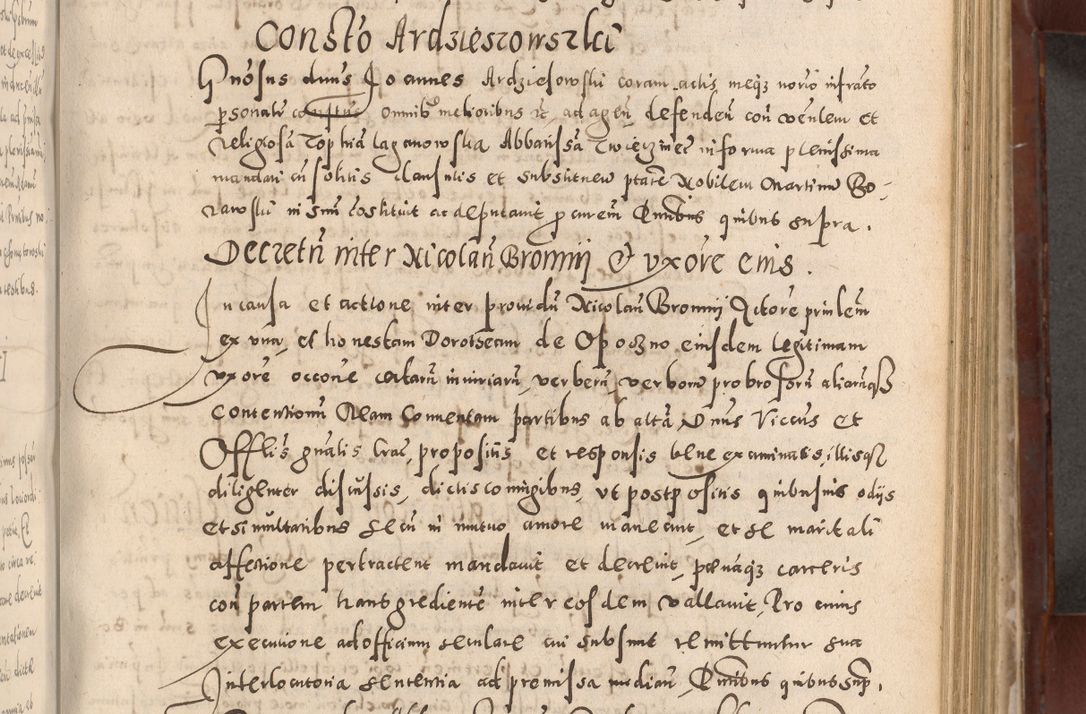 Consto Ardzieszowszkci
Gnosus dnus Joannes Ardziesowski coram actis meqz norio infrato
psonalr constitus omnib melioribus &c, ad agen, defenden con venlem et
religiosa Zophia laganowska Abbatissa Zwierzinec in forma plenissima
mandati cu solitis clausulis et substituen ptate Nobilem Martinu Bo-
rawski in suu costituit ac deputauit procurem Quitibus quibus supra.
Decretu inter Nicolau Bromnij & vxore eius.
In causa et actione inter prouidu Nicolau Bromnij Actore principlem
ex una, et honestam Dorotheam de Opoczno eiusdem legitimam
vxore occone certaru iniuriaru, verberu, verboru probrosoru aliaruqz
Contentionu Ream Conuentam partibus ab altra Dnus Viccus et
Offlis gnalis Crac, propositis et responsis bene examinatis, illisqz
diligenter discussis, dictis coniugibus, vt postpositis quibusuis odijs
et simultatibus secu in mutuo amore maneant, et se maritali
affectione pertractent mandauit et decreuit, penaqz carceris
con partem transgrediente inter eosdem vallauit, Pro cuius
executione ad officium seculare cui subsunt remittuntur sua
Interlocutoria sententia ad promissa median, Quitibus quibus sup.